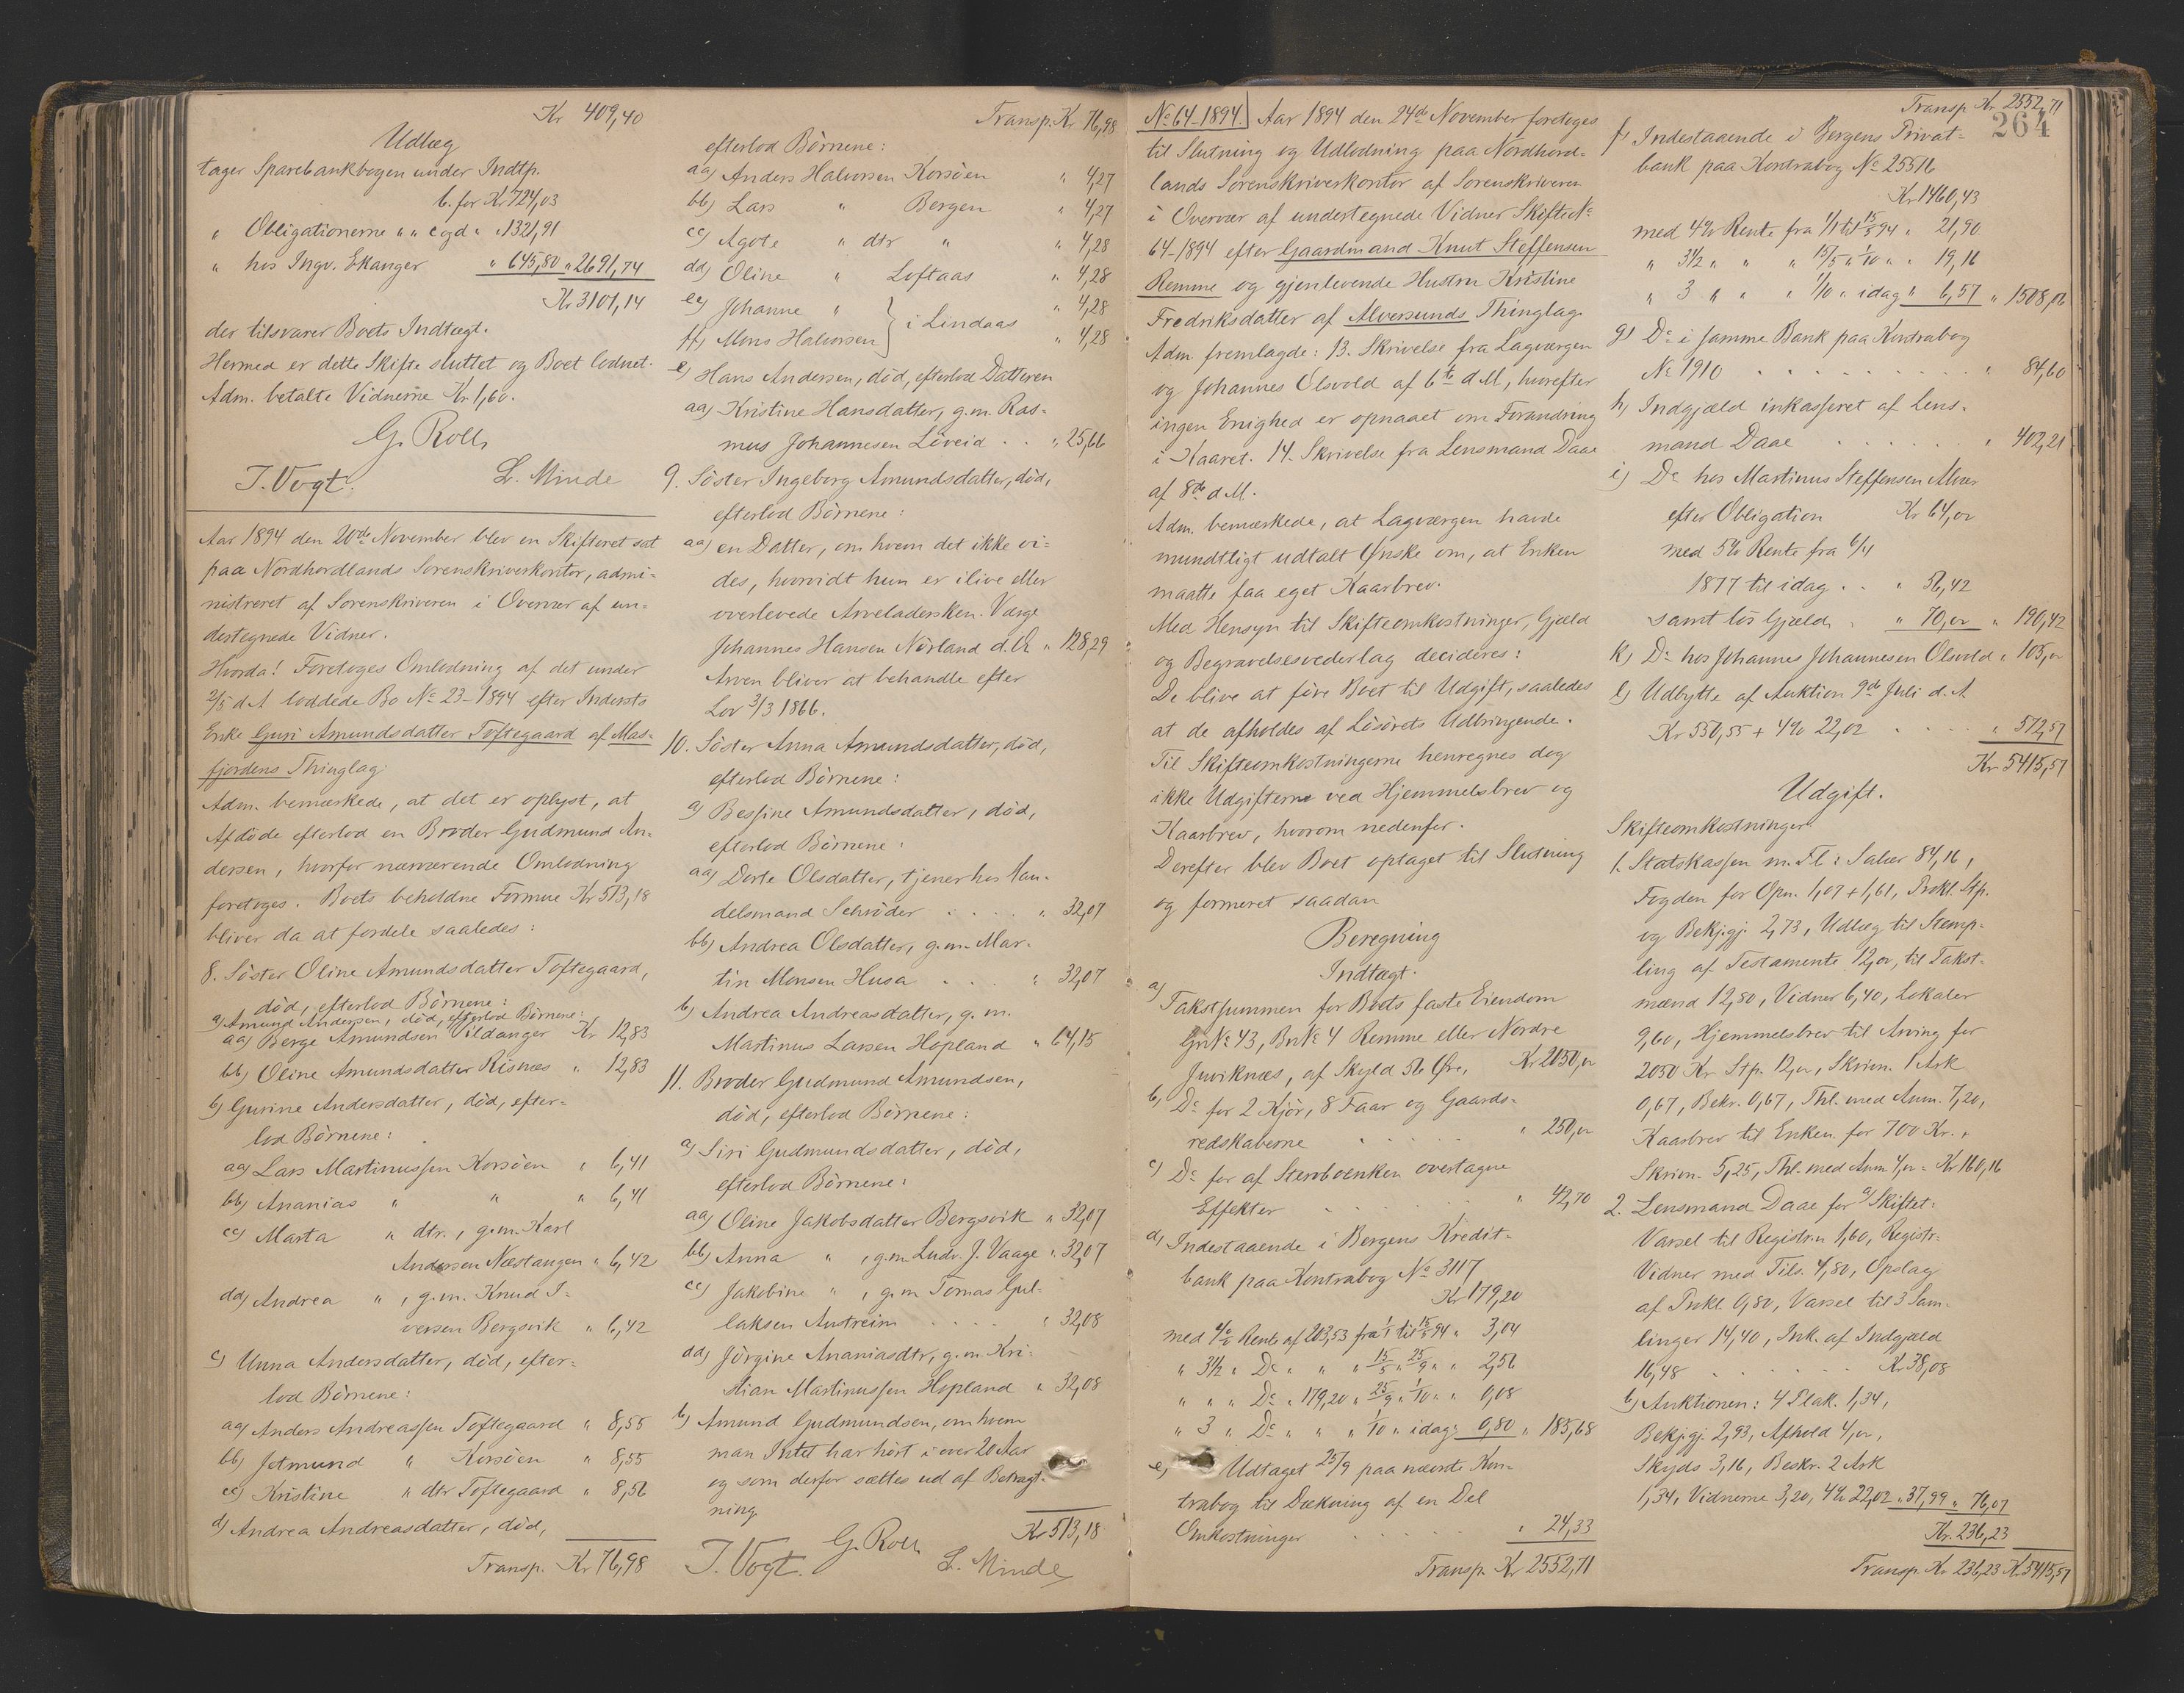 Kr 409,40
Udlæg
tager Sparebankbogen under Indtp.
b. for Kr 724,03
" Obligationerne " " c og d " " 1321,91
" hos Ingv. Ekanger " 645,80 " 2691,74
Kr 3101,14
der tilsvarer Boets Indtægt.
Hermed er dette Skifte sluttet og Boet loddet.
Adm. betalte Vidnerne Kr 1,60.
G. Roll
J. Vogt. L. Minde
Aar 1894 den 20de November blev en Skifteret sat
paa Nordhordlands Sorenskriverkontor, admi=
nistreret af Sorenskriveren i Overvær af un=
dertegnede Vidner.
Hvorda! Foretoges Omlodning af det under
2/5 d A loddede Bo No 23-1894 efter Indersts
Enke Guri Amundsdatter Toftegaard af Mas=
fjordens Thinglag.
Adm. bemærkede, at det er oplyst, at
Afdöde efterlod en Broder Gudmund An=
dersen, hvorfor nærværende Omlodning
foretoges. Boets beholdne Formue Kr 513,18
bliver da at fordele saaledes:
8. Söster Oline Amundsdatter Toftegaard,
död, efterlod Börnene:
a) Amund Andersen, död, efterlod Börnene:
aa) Berge Amundsen Vildanger Kr 12,83
bb) Oline Amundsdatter Risnes " 12,83
b) Gurine Andersdatter, död, efter=
lod Börnene:
aa) Lars Martinussen Korsöen " 6,41
bb) Ananias " " " 6,41
cc) Marta " dtr., g.m. Karl
Andersen Næstangen " 6,42
dd) Andrea " , g.m. Knud I=
versen Bergsvik " 6,42
c) Unna Andersdatter, död, efter=
lod Börnene:
aa) Anders Andreassen Toftegaard " 8,55
bb) Jetmund " Korsöen " 8,55
cc) Kristine " dtr Toftegaard " 8,56
d) Andrea Andreasdatter, död,
Transp. Kr 76,98
Transp. Kr 76,98
efterlod Börnene:
aa) Anders Halvorsen Korsöen " 4,27
bb) Lars " Bergen " 4,27
cc) Agote " dtr " " 4,28
dd) Oline " Loftaas " 4,28
ee) Johanne " " 4,28
i Lindaas
ff) Mons Halvorsen " 4,28
e) Hans Andersen, död, efterlod Datteren
aa) Kristine Hansdatter, g.m. Ras=
mus Johannesen Löveid . . " 25,66
9. Söster Ingeborg Amundsdatter, död,
efterlod Börnene:
aa) en Datter, om hvem det ikke vi=
des, hvorvidt hun er ilive eller
overlevede Arveladersken. Værge
Johannes Hansen Nörland d.Æ " 128,29
Arven bliver at behandle efter
Lov 3/3 1866.
10. Söster Anna Amundsdatter, död,
efterlod Börnene:
a) Bessine Amundsdatter, död,
efterlod Börnene:
aa) Dorte Olsdatter, tjener hos Han=
delsmand Schröder . . . . " 32,07
bb) Andrea Olsdatter, g.m. Mar=
tin Monsen Husa . . . " 32,07
b) Andrea Andreasdatter, g. m.
Martinus Larsen Hopland " 64,15
11. Broder Gudmund Amundsen,
död, efterlod Börnene:
a) Siri Gudmundsdatter, död,
efterlod Börnene:
aa) Oline Jakobsdatter Bergsvik " 32,07
bb) Anna " , g.m Ludv. J. Vaage " 32,07
cc) Jakobine " , g.m Tomas Gul=
laksen Austreim . . . . " 32,08
dd) Jörgine Ananiasdtr, g.m. Kri=
stian Martinussen Hopland " 32,08
b) Amund Gudmundsen, om hvem
man Intet har hört i over 20 Aar
og som derfor sættes ud af Betragt=
ning.
Kr 513,18
G. Roll
J. Vogt. L. Minde
No 64-1894. Aar 1894 den 24de November foretoges
til Slutning og Udlodning paa Nordhord=
lands Sorenskriverkontor af Sorenskriveren
i Overvær af undertegnede Vidner Skifte No
64-1894 efter Gaardmand Knut Steffensen
Remme og gjenlevende Hustru Kristine
Fredriksdatter af Alversunds Thinglag.
Adm fremlagde: 13. Skrivelse fra Lagværgen
og Johannes Olsvold af 6te d M, hvorefter
ingen Enighed er opnaaet om Forandring
i Kaaret. 14. Skrivelse fra Lensmand Daae
af 8de d M.
Adm. bemærkede, at Lagværgen havde
mundtligt udtalt Ønske om, at Enken
maatte faa eget Kaarbrev.
Med Hensyn til Skifteomkostninger, Gjæld
og Begravelsesvederlag decideres:
De blive at före Boet til Udgift, saaledes
at de afholdes af Lösörets Udbringende.
Til Skifteomkostningerne henregnes dog
ikke Udgifterne ved Hjemmelsbrev og
Kaarbrev, hvorom nedenfor.
Derefter blev Boet optaget til Slutning
og formeret saadan
Beregning
Indtægt.
a) Takstsummen for Boets faste Eiendom
Gr No 43, Br No 4 Remme eller Nordre
Juviknes, af Skyld 56 Øre, Kr 2050,00
b) Do for 2 Kjör, 8 Faar og Gaards=
redskaberne . . . . . " 250,00
c) Do for af Stervboenken overtagne
Effekter . . . . . " 42,70
d) Indestaaende i Bergens Kredit=
bank paa Kontrabog No 3117
Kr 179,20
med 4% Rente af 203,53 fra 1/1 til 15/5 94 " 3,04
" 3½ " Do " " " 15/5 " 25/9 " " 2,56
" " " Do " 179,20 " 25/9 " 1/10 " " 0,08
" 3 " Do " " " 1/10 " idag " 0,80 " 185,68
e) Udtaget 25/9 paa nævnte Kon=
trabog til Dækning af en Del
Omkostninger . . . . . " 24,33
Transp. Kr 2552,71
Transp Kr 2552,71
264
f) Indestaaende i Bergens Privat=
bank paa Kontrabog No 25516
Kr 1460,43
med 4% Rente fra 1/1 til 15/5 94 " 21,90
" 3½ " " " 15/5 " 1/10 " " 19,16
" 3 " " " 1/10 " idag " 6,57 " 1508,06
g) Do i samme Bank paa Kontrabog
No 1910 . . . . . . . . . " 84,60
h) Indgjæld inkasseret af Lens=
mand Daae . . . . . . " 402,21
i) Do hos Martinus Steffensen Alver
efter Obligation Kr 64,00
med 5% Rente fra 6/4
1877 til idag . . " 56,42
samt lös Gjæld . " 70,00 " 190,42
k) Do hos Johannes Johannesen Olsvold " 105,00
l) Udbytte af Auktion 9de Juli d. A.
Kr 550,55 + 4% 22,02 . . . . " 572,57
Kr 5415,57
Udgift.
Skifteomkostninger:
1. Statskassen m.Fl: Salær 84,16,
Fogden for Opn. 1,07 + 1,61, Prokl. Stp.
og Bekj.gj. 2,73, Udlæg til Stemp=
ling af Testamente 12,00, til Takst=
mænd 12,80, Vidner 6,40, Lokaler
9,60, Hjemmelsbrev til Arving for
2050 Kr Stp. 12,00, Skrivn. 1 Ark
0,67, Bekr. 0,67, Thl. med Anm. 7,20,
Kaarbrev til Enken for 700 Kr.,
Skrivn. 5,25, Thl. med Anm. 4,00 = Kr 160,16
2. Lensmand Daae for a) Skiftet:
Varsel til Registr.n 1,60, Registr=
Vidner med Tils. 4,80, Opslag
af Prokl. 0,80, Varsel til 3 Sam=
linger 14,40, Ink. af Indgjæld
16,48 . . . . . . . Kr 38,08
b) Auktionen: 4 Plak. 1,34,
Bekj.gj. 2,93, Afhold 4,00,
Skyds 3,16, Beskr. 2 Ark
1,34, Vidnerne 3,20, 4% 22,02 " 37,99 " 76,07
Kr. 236,23
Transp. Kr 236,23 Kr 5415,57